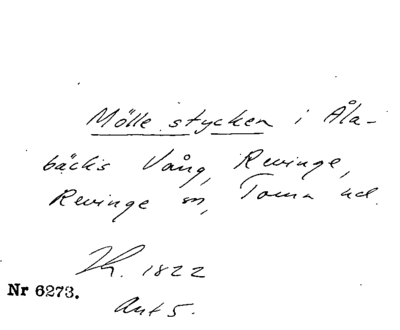 Mölle stycken i Åla-
bäcks Vång, Revinge,
Revinge sn, Torna hd.
Lh. 1822
Nr 6273.
Akt 5.